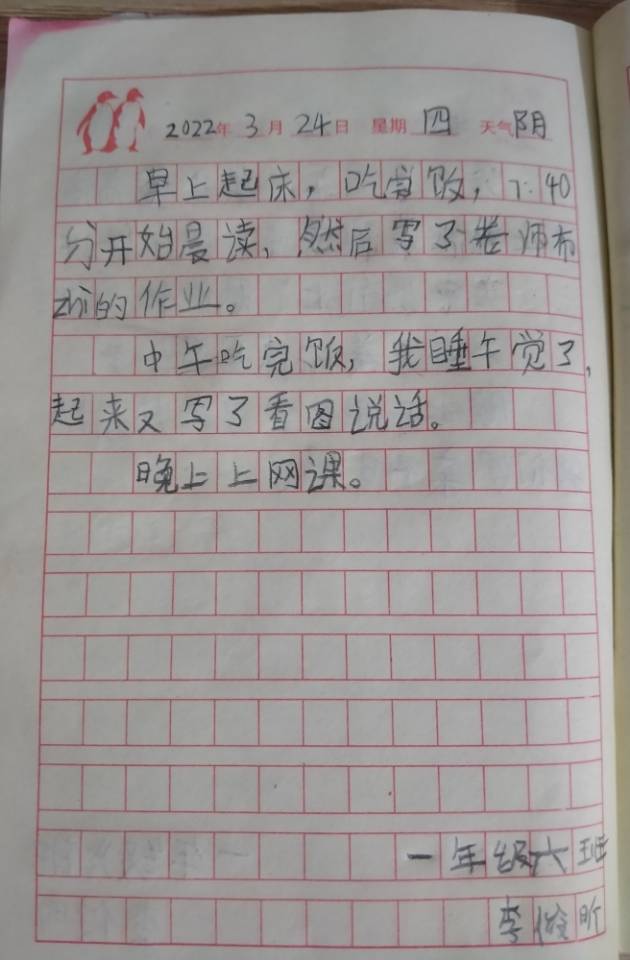 2022年 3月 24日 星期 四 天气 阴
早上起床，吃完饭，7:40
分开始晨读、然后写了老师布
zhi的作业。
中午吃完饭，我睡午觉了，
起来又写了看图说话。
晚上上网课。
一年级六班
李俊昕